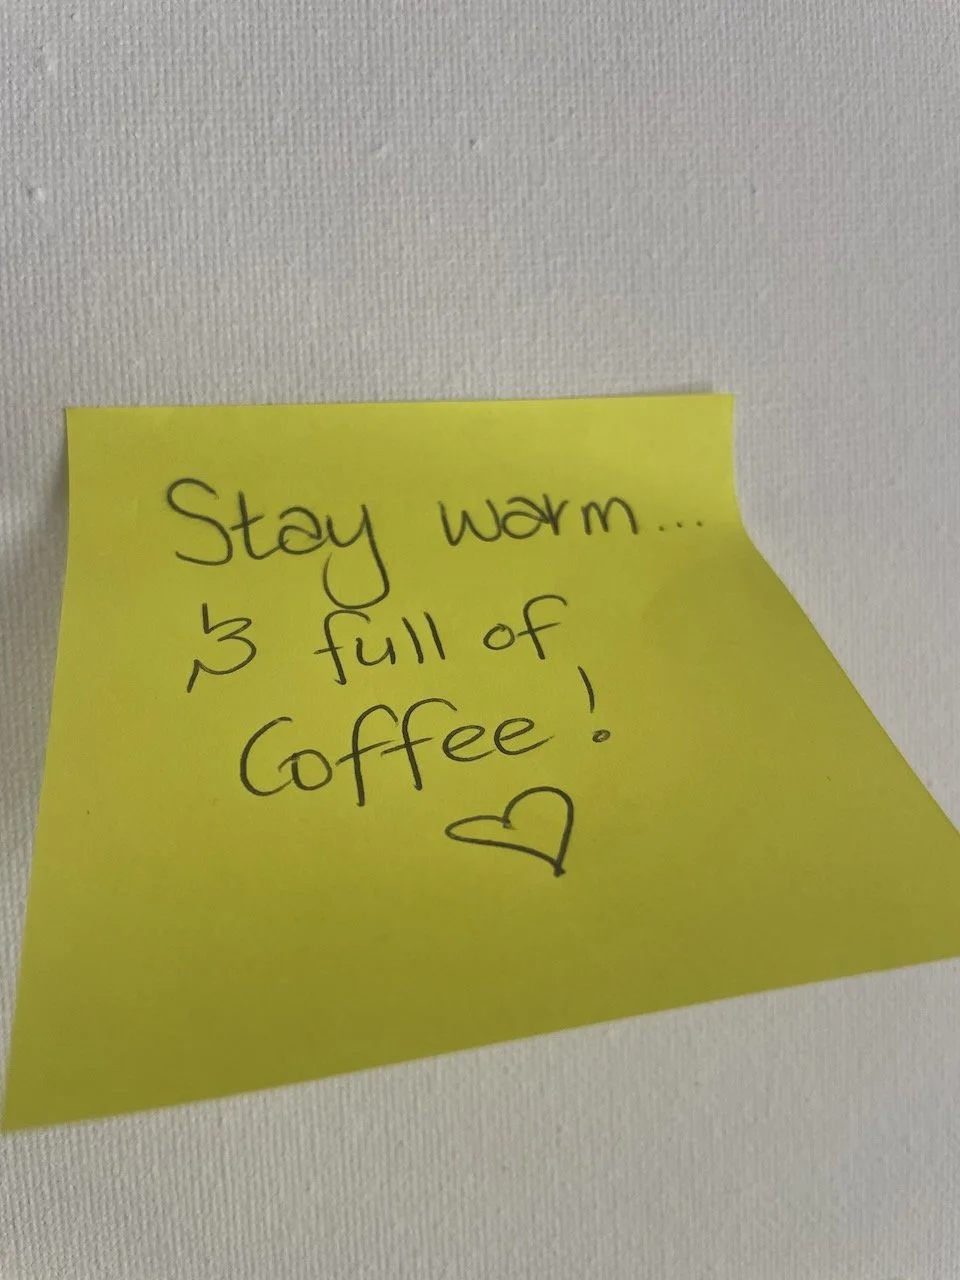 Stay warm...
& full of
Coffee!